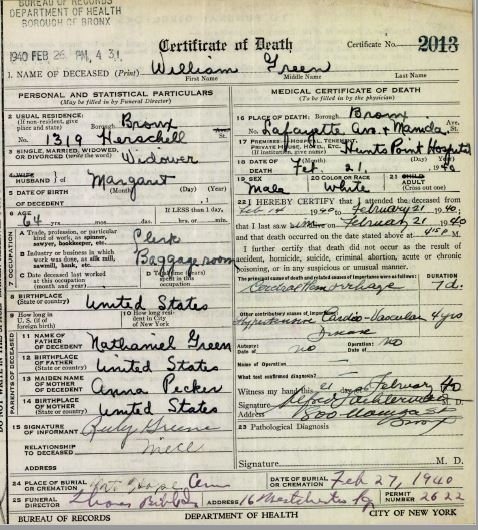 BUREAU OF RECORDS
DEPARTMENT OF HEALTH
BOROUGH OF BRONX
1940 FEB 26 PM 4 31
Certificate of Death
Certificate No. 2013
1. NAME OF DECEASED (Print) William Green
First Name Middle Name Last Name
PERSONAL AND STATISTICAL PARTICULARS
(May be filled in by Funeral Director)
2 USUAL RESIDENCE: (If non-resident, give place and state) Borough Bronx
No. 1319 Herschell Ave. St.
3 SINGLE, MARRIED, WIDOWED, OR DIVORCED (write the word) Widower
4 WIFE HUSBAND of Margaret
5 DATE OF BIRTH OF DECEDENT (Month) (Day) (Year)
6 AGE 64 yrs. mos. days. If LESS than 1 day, hrs. or min.
7 OCCUPATION
A Trade, profession, or particular kind of work, as spinner, sawyer, bookkeeper, etc. Clerk
B Industry or business in which work was done, as silk mill, sawmill, bank, etc. Baggage room
C Date deceased last worked at this occupation (month and year)
D Total years spent in this occupation
8 BIRTHPLACE (State or country) United States
9 How long in U. S. (if of foreign birth)
10 How long resident in City of NEW YORK
PARENTS OF DECEASED
11 NAME OF FATHER OF DECEDENT Nathaniel Green
12 BIRTHPLACE OF FATHER (State or country) United States
13 MAIDEN NAME OF MOTHER OF DECEDENT Anna Pecker
14 BIRTHPLACE OF MOTHER (State or country) United States
15 SIGNATURE OF INFORMANT Ruby Greene
RELATIONSHIP TO DECEASED niece
ADDRESS
MEDICAL CERTIFICATE OF DEATH
(To be filled in by the physician)
16 PLACE OF DEATH: Borough Bronx
No. Lafayette Ave. & Manida Ave. St.
17 Hunts Point Hospital
18 DATE OF DEATH Feb. 21 1940
(Month) (Day) (Year)
19 SEX Male
20 COLOR OR RACE White
21 CHILD ADULT (Cross out one)
22 I HEREBY CERTIFY that I attended the deceased from
Feb 14 1940 to February 21 1940,
that I last saw him on February 21 1940
and that death occurred on the date stated above at 4:50 P. M.
I further certify that death did not occur as the result of
accident, homicide, suicide, criminal abortion, acute or chronic
poisoning, or in any suspicious or unusual manner.
The principal cause of death and related causes of importance were as follows: DURATION
Cerebral Hemorrhage 7d.
Other contributory causes of importance:
Hypertensive Cardio-Vascular 4 yrs
Disease
Autopsy: Date of no Operation: Date of no
Name of Operation
What test confirmed diagnosis?
Witness my hand this 21 day of February 1940
Signature M. D.
Address
23 Pathological Diagnosis
Signature M. D.
24 PLACE OF BURIAL OR CREMATION Mt Hope Cem
DATE OF BURIAL OR CREMATION Feb 27, 1940
25 FUNERAL DIRECTOR ADDRESS
PERMIT NUMBER 2622
BUREAU OF RECORDS DEPARTMENT OF HEALTH CITY OF NEW YORK